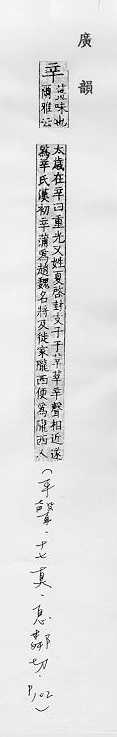 廣韻
辛
荎味也
爾雅云
太歲在辛曰重光又姓夏啓封支子于莘莘辛聲相近遂
爲辛氏漢初辛蒲爲趙魏名將及徙家隴西便爲隴西人
(平聲.十七真.息鄰切.P.102)